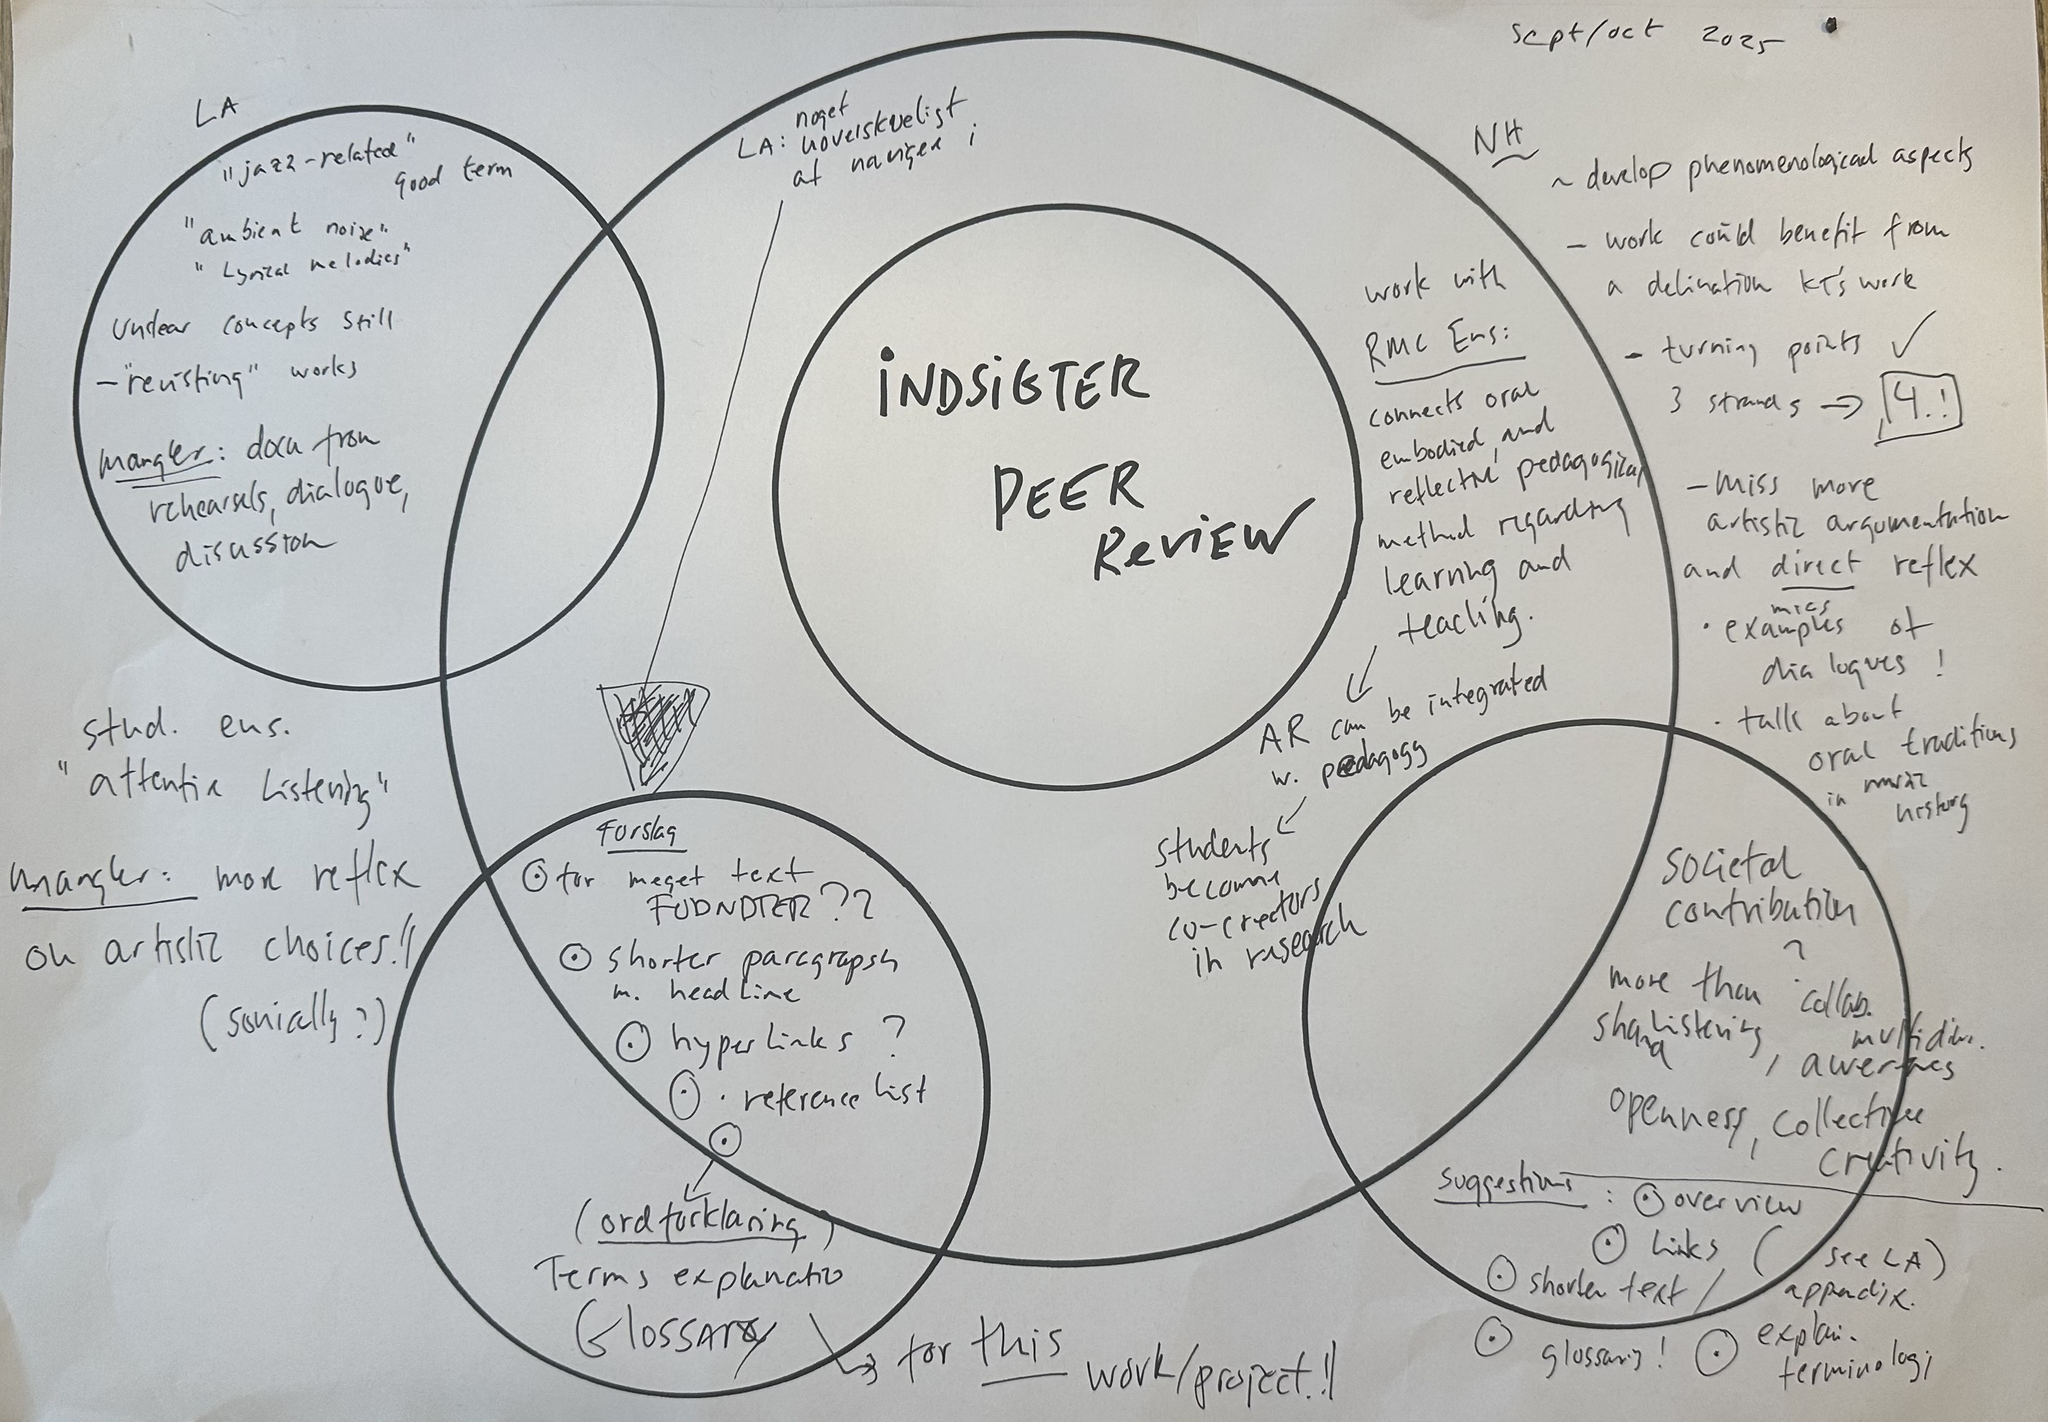 sept/oct 2025
LA
"jazz-related"
good term
"ambient noise"
"Lyrical melodies"
Unclear concepts still
- "revisting" works
mangler: docu from
rehearsels, dialogue,
discussion
stud. ens.
"attentive listening"
mangler: more reflex
on artistic choices!!
(sonically?)
noget
LA: uoverskueligt
at navigere i
INDSIGTER
PEER
REVIEW
work with
RMC Ens:
connects oral
embodied, and
reflective pedagogical
method regarding
learning and
teaching.
AR can be integrated
w. pedagogy
students
become
co-creators
in research
NH
~ develop phenomenological aspects
- work could benefit from
a delination KT's work
- turning points ✓
3 strands → 4.!
- miss more
artistic argumentation
and direct reflex
· examples of
dialogues!
· talk about
oral traditions
in music
history
Forslag
for meget text
FODNOTER??
shorter paragrapsh
m. headline
hyperlinks ?
· reference list
(ordforklaring)
Terms explanatio
Glossary
→ for this work/project!!
societal
contribution
?
more than collab.
listening, multidim.
awarenes
openness, collective
creativity.
suggestions: overview
Links (see LA)
shorter text / appendix.
glossary! explain.
terminologi